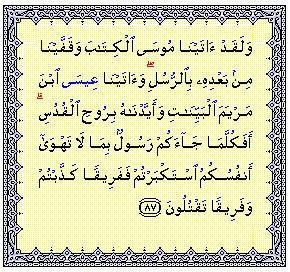 وَلَقَدْ ءَاتَيْنَا مُوسَى ٱلْكِتَٰبَ وَقَفَّيْنَا
مِنۢ بَعْدِهِۦ بِٱلرُّسُلِ ۖ وَءَاتَيْنَا عِيسَى ٱبْنَ
مَرْيَمَ ٱلْبَيِّنَٰتِ وَأَيَّدْنَٰهُ بِرُوحِ ٱلْقُدُسِ ۗ
أَفَكُلَّمَا جَآءَكُمْ رَسُولٌۢ بِمَا لَا تَهْوَىٰٓ
أَنفُسُكُمُ ٱسْتَكْبَرْتُمْ فَفَرِيقًا كَذَّبْتُمْ
وَفَرِيقًا تَقْتُلُونَ ٨٧